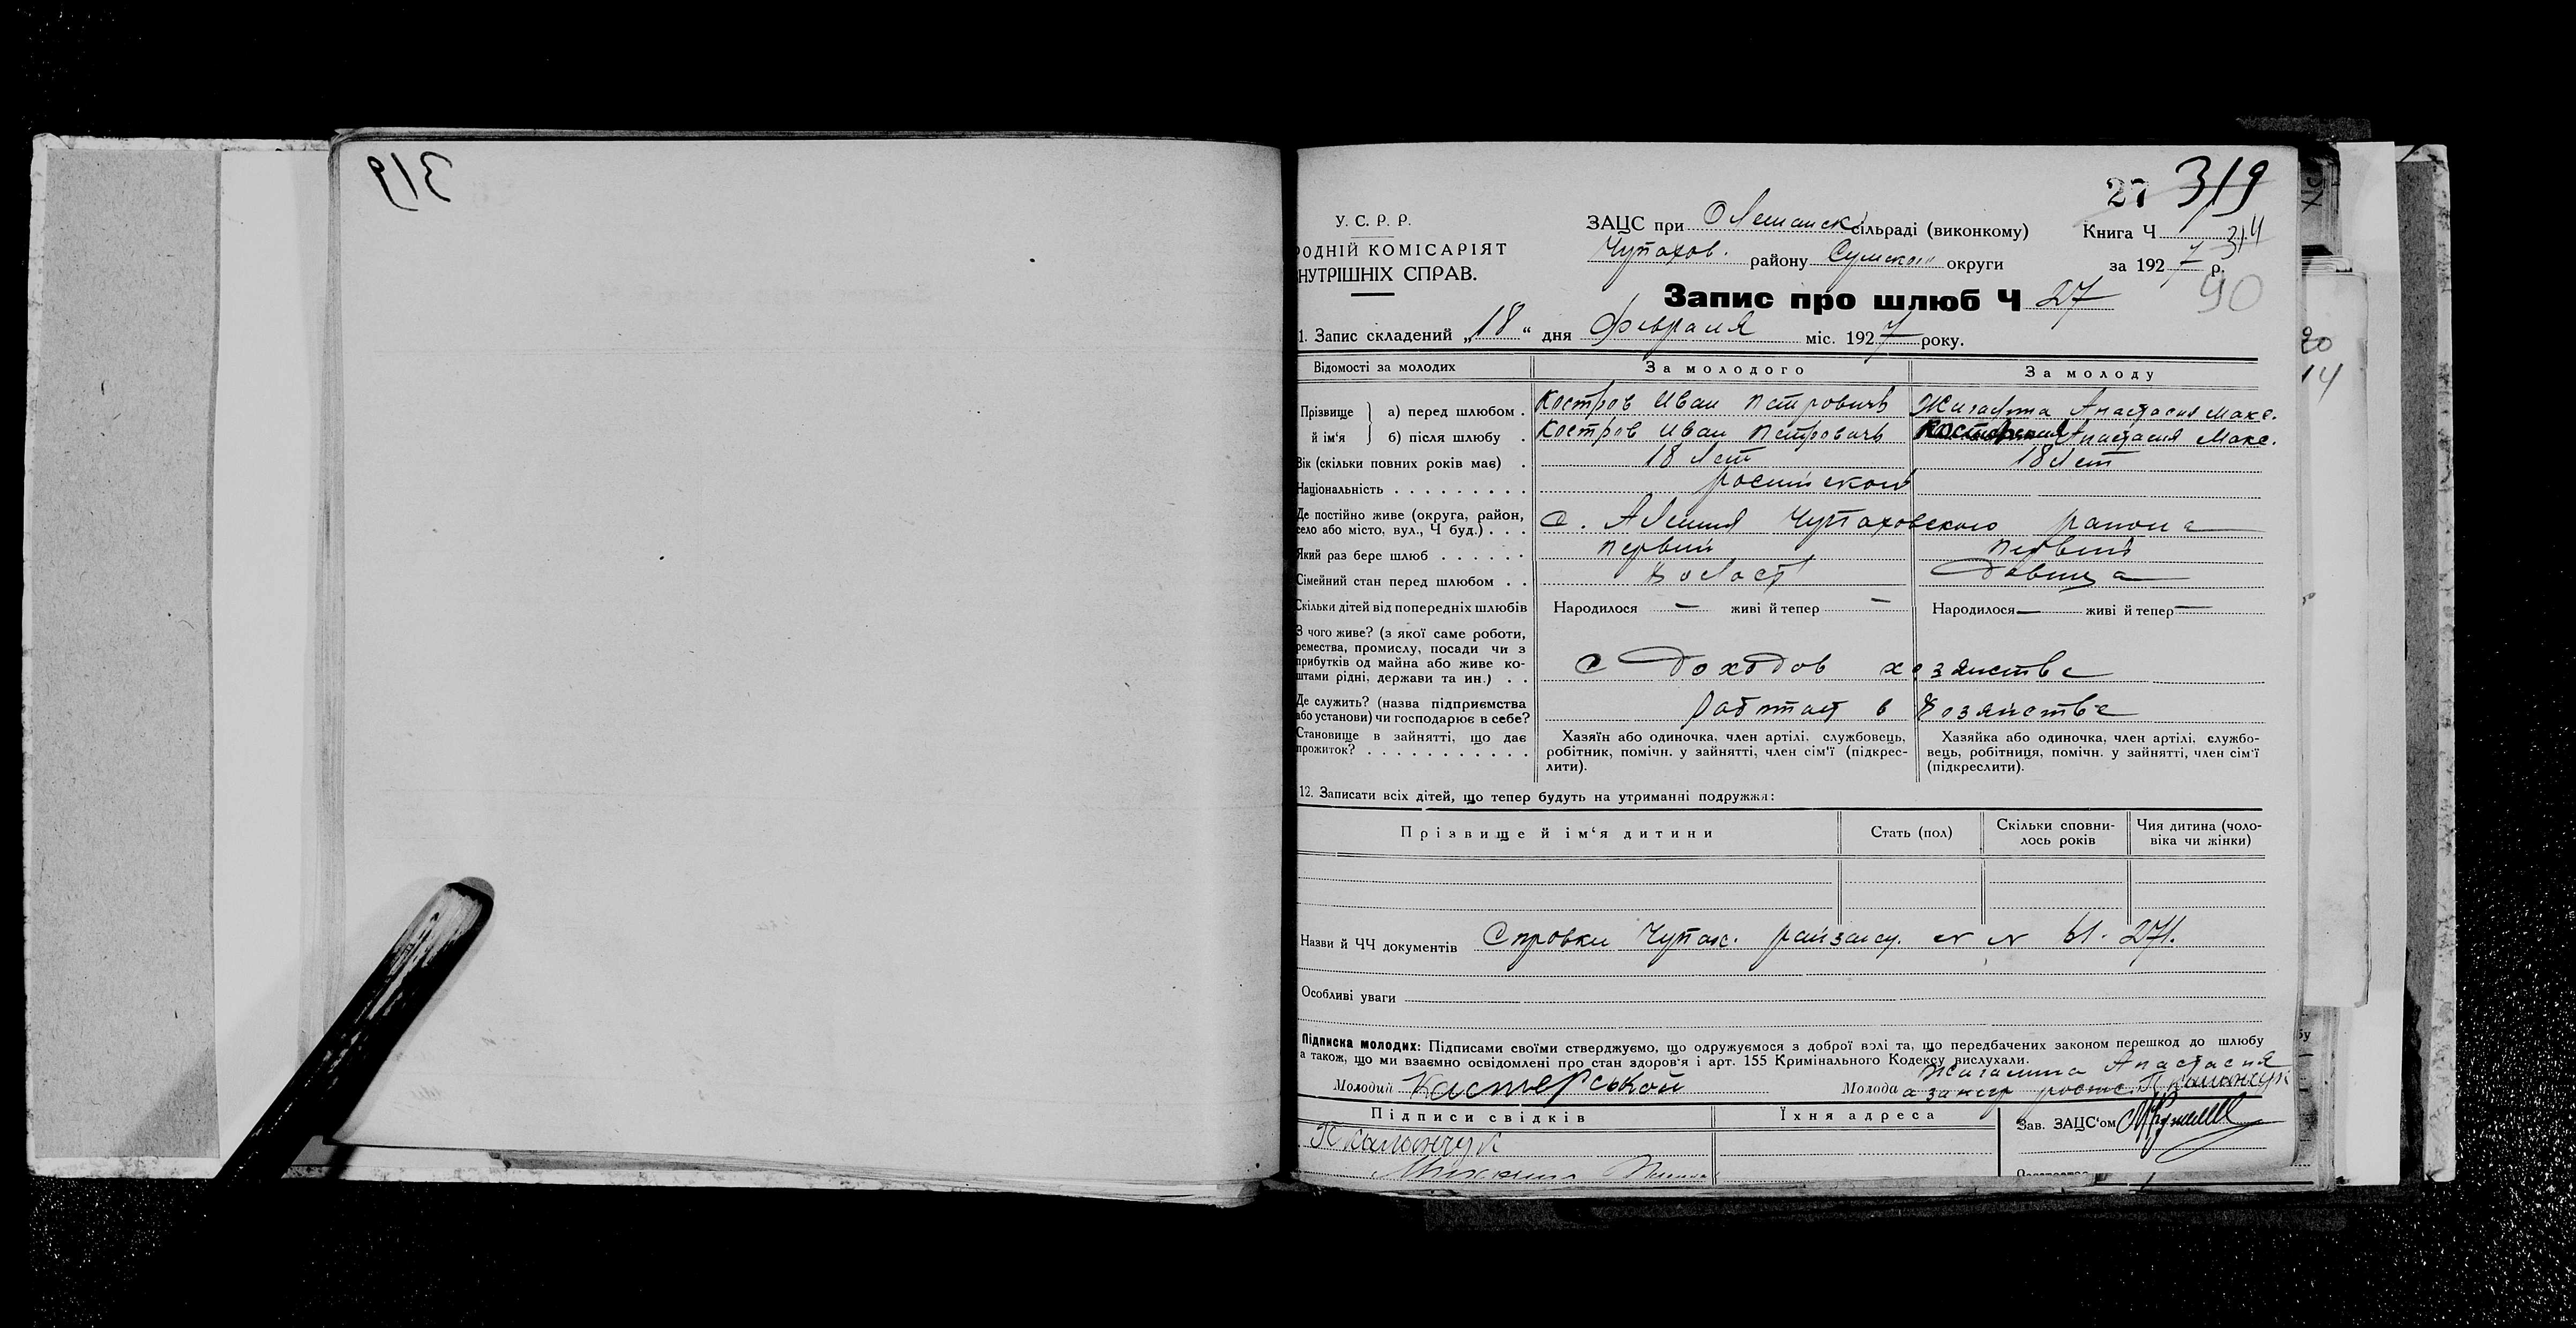 319
27 319
У. С. Р. Р.
РОДНІЙ КОМІСАРІЯТ
НУТРІШНІХ СПРАВ.
ЗАЦС при сільраді (виконкому)
Книга Ч
314
Чупахов. району Сумского округи
за 1927 р.
90
Запис про шлюб Ч 27
1. Запис складений „18“ дня Февраля міс. 1927 року.
Відомості за молодих За молодого За молоду
Прізвище й ім'я
а) перед шлюбом . Костров Иван Петровичь Анастасия Макс.
б) після шлюбу . Костров Иван Петровичь Анастасия Макс.
Вік (скільки повних років має) . 18 лет 18 лет
Національність . . . . . . . . . российской
Де постійно живе (округа, район,
село або місто, вул., Ч буд.) . . . с. Алешня Чупаховского района
Який раз бере шлюб . . . . . . первий первий
Сімейний стан перед шлюбом . . холост девица
Скільки дітей від попередніх шлюбів Народилося — живі й тепер — Народилося — живі й тепер —
З чого живе? (з якої саме роботи,
ремества, промислу, посади чи з
прибутків од майна або живе ко-
штами рідні, держави та ин.) . . с доходов хозяйства
Де служить? (назва підприємства
або установи) чи господарює в себе? в хозяйстве
Становище в зайнятті, що дає
прожиток? . . . . . . . . . . .
Хазяїн або одиночка, член артілі, службовець,
робітник, помічн. у зайнятті, член сім'ї (підкрес-
лити).
Хазяйка або одиночка, член артілі, службо-
вець, робітниця, помічн. у зайнятті, член сім'ї
(підкреслити).
12. Записати всіх дітей, що тепер будуть на утриманні подружжя:
Прізвище й ім'я дитини Стать (пол) Скільки сповни-
лось років Чия дитина (чоло-
віка чи жінки)
Назви й ЧЧ документів Справки Чупах. райзагсу. N N 61. 271.
Особливі уваги
Підписка молодих: Підписами своїми стверджуємо, що одружуємося з доброї волі та, що передбачених законом перешкод до шлюбу
а також, що ми взаємно освідомлені про стан здоров'я і арт. 155 Кримінального Кодексу вислухали.
Анастасия
Молодий Костерськой Молода
Підписи свідків Їхня адреса
Зав. ЗАЦС'ом
20
14